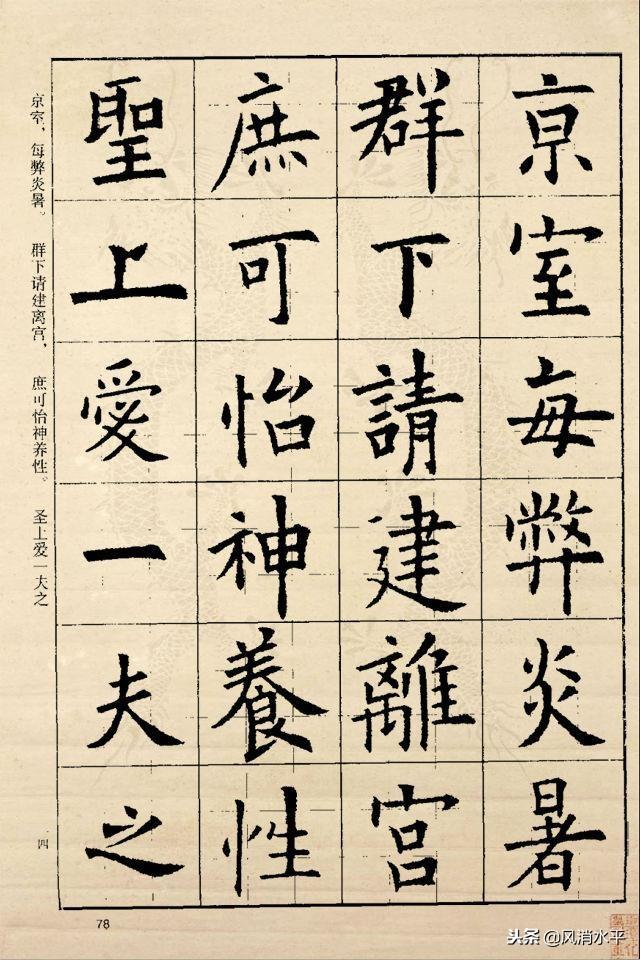 京室每弊炎暑
群下請建離宮
庶可怡神養性
聖上愛一夫之
京室，每弊炎暑。 群下请建离宫， 庶可怡神养性。 圣上爱一夫之
一四
78
头条@风消水平